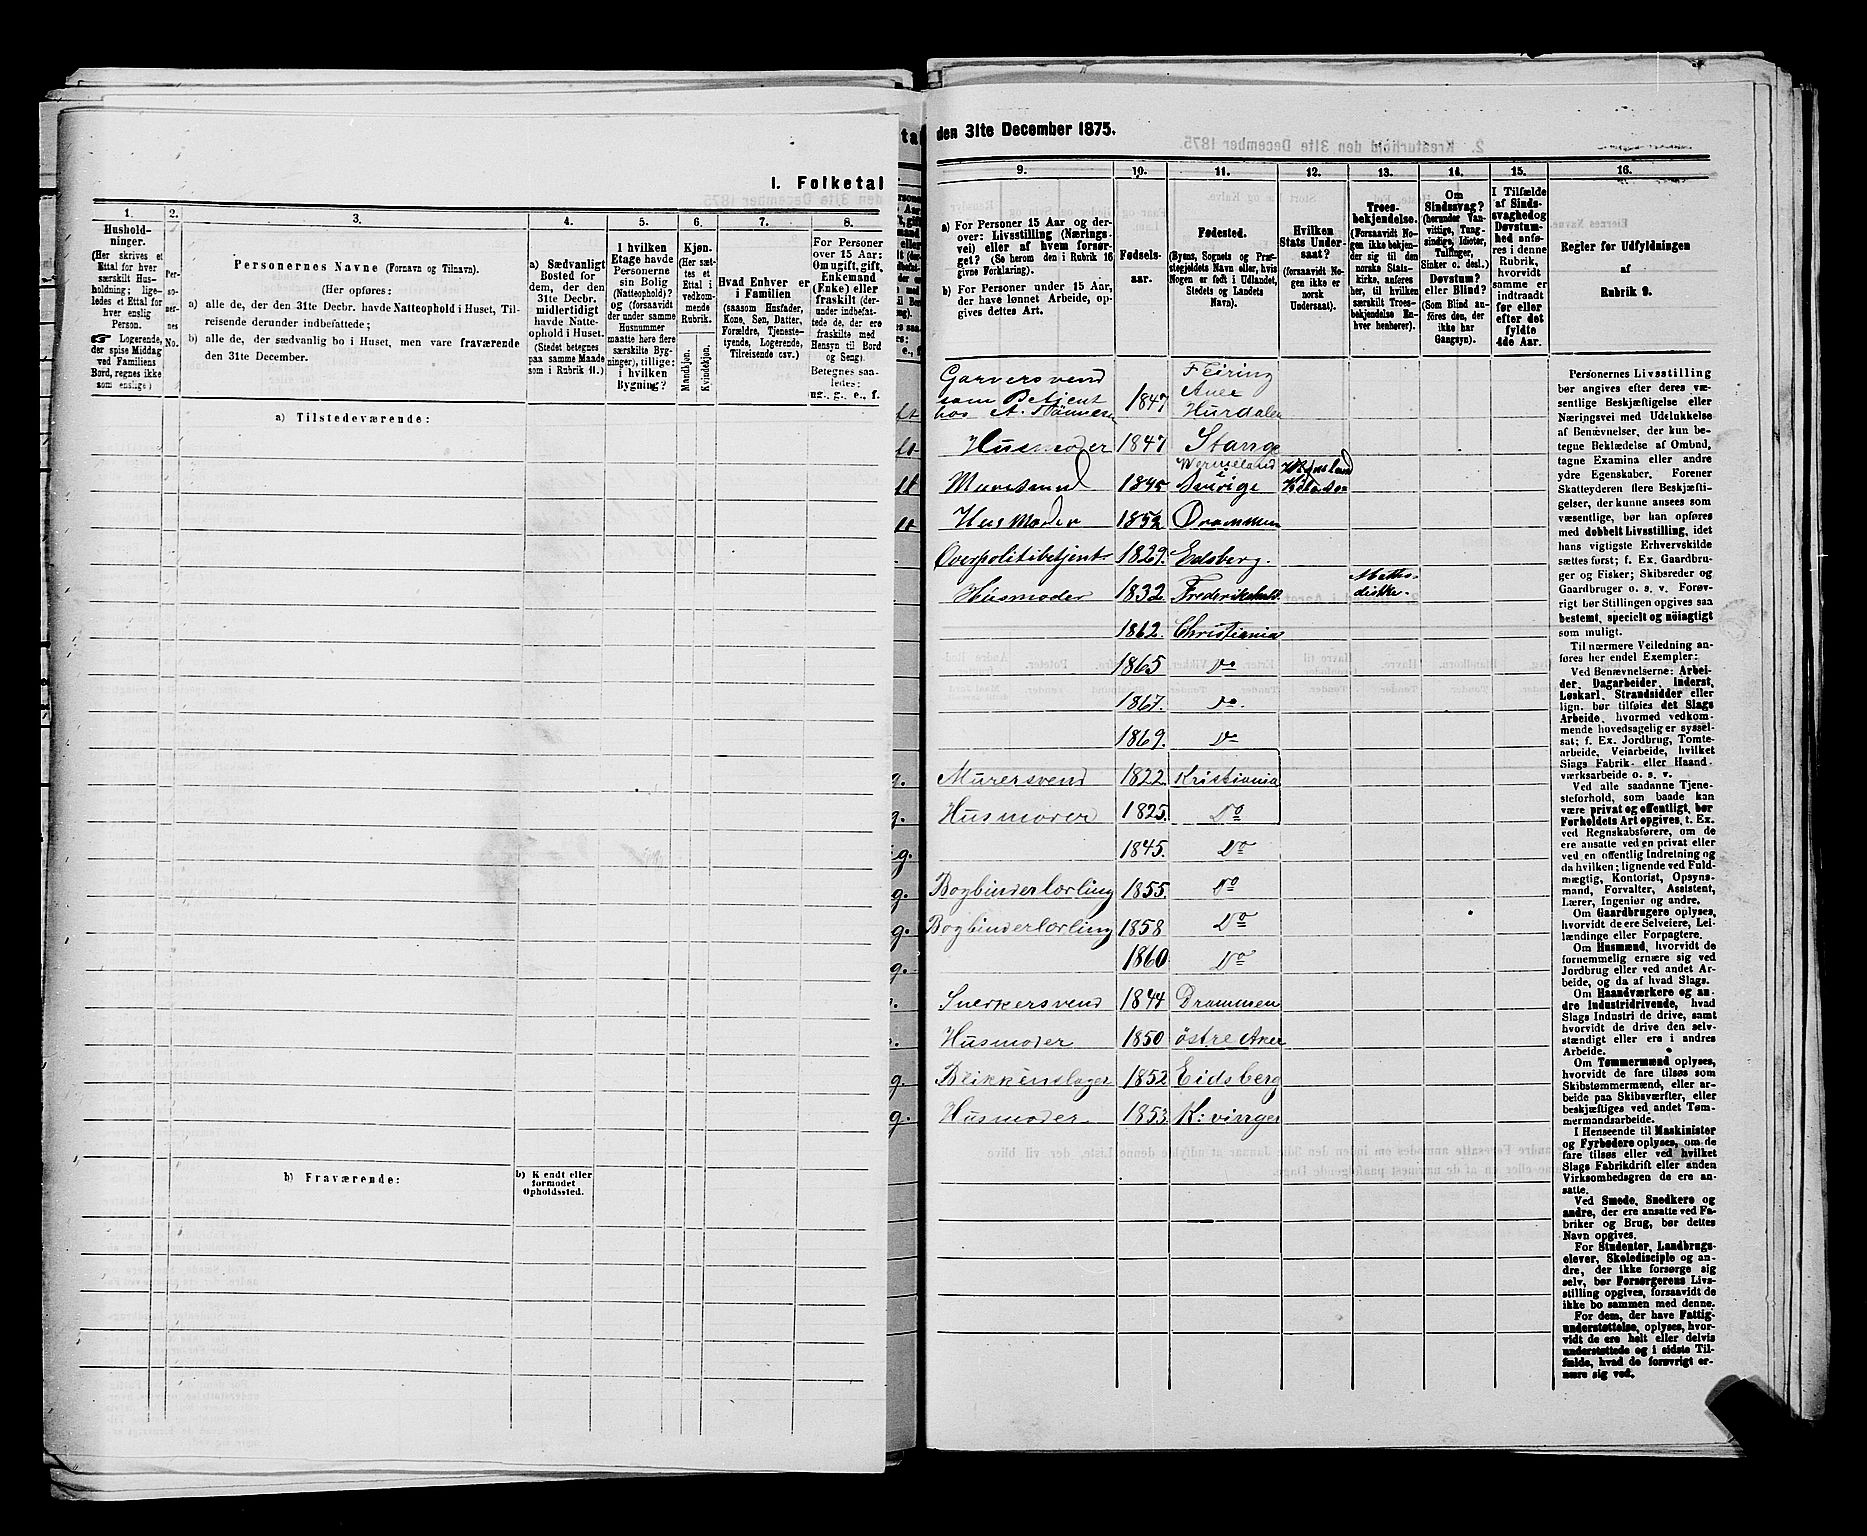 I. Folketal
1.
2.
3.
4.
5.
6.
7.
8.
Husholdninger.
(Her skrives et
Ettal for hver
særskilt Husholdning;
ligeledes
et Ettal for
hver enslig
Person.
Logerende,
der spise Middag
ved Familiens
Bord, regnes ikke
som enslige)
Personernes
No.
Personernes Navne (Fornavn og Tilnavn).
(Her opføres:
a) alle de, der den 31te Decbr. havde Natteophold i Huset, Tilreisende
derunder indbefattede;
b) alle de, der sædvanlig bo i Huset, men vare fraværende
den 31te December.
a) Sædvanligt
Bosted for
dem, der den
31te Decbr.
midlertidigt
havde Natteophold
i Huset.
(Stedet betegnes
paa samme Maade
som i Rubrik 11.)
I hvilken
Etage havde
Personerne
sin Bolig
(Natteophold)?
og (forsaavidt
der under samme
Husnummer
maatte høre flere
særskilte Bygninger),
tillige:
i hvilken
Bygning?
Kjøn.
(Her sættes
et
Ettal i
vedkommende
Rubrik.
Mandkjøn.
Kvindekjøn.
Hvad Enhver er
i Familien
(saasom Husfader,
Kone, Søn, Datter,
Forældre, Tjenestetyende,
Logerende,
Tilreisende osv.)
For Personer
over 15 Aar:
Om ugift, gift,
Enkemand
(Enke) eller
fraskilt (derunder
indbefattede
de, der ere
fraskilte med
Hensyn til Bord
og Seng).
Betegnes saaledes:
ug., g., e., f.
a) Tilstedeværende:
b) Fraværende:
b) Kjendt eller
formodet
Opholdssted.
den 31te December 1875.
9.
10.
11.
12.
13.
14.
15.
16.
a) For Personer 15 Aar og derover:
Livsstilling (Næringsvei)
eller af hvem forsørget?
(Se herom den i Rubrik 16
givne Forklaring).
b) For Personer under 15 Aar,
der have lønnet Arbeide, opgives
dettes Art.
Fødselsaar.
Fødested.
(Byens, Sognets og Præstegjeldets
Navn eller, hvis
Nogen er født i Udlandet,
Stedets og Landets
Navn).
Hvilken
Stats Undersaat?
(forsaavidt Nogen
ikke er
norsk
Undersaat).
Troesbekjendelse.
(Forsaavidt Nogen
ikke bekjender
sig til den
norske Statskirke,
anføres
her, til hvilken
særskilt Troesbekjendelse
Enhver
henhører).
Om
Sindssvag?
(herunder Vanvittige,
Tungsindige,
Idioter,
Tullinger,
Sinker o. desl.)
Døvstum?
eller Blind?
(Som Blind anføres
den, der
ikke har
Gangsyn).
I Tilfælde
af Sindssvaghed
og
Døvstumhed
anføres
i denne
Rubrik,
hvorvidt
samme er
indtraadt
før eller
efter det
fyldte
4de Aar.
Regler for Udfyldningen
af
Rubrik 9.
Garversvend
som Betjent
hos A.
1847
Feiring
Hurdalen
Husmoder 1847 Stange
Mursvend 1845 Vermeland i Sverige
Husmoder 1852 Drammen
Overpolitibetjent 1829. Edsberg.
Husmoder 1832 Frederikshald. Methodiske.
1862. Christiania
1865 Do
1867. Do.
1869. Do
Murersvend 1822. Kristiania
Husmoder 1825. Do
1845. Do
Bogbinderlærling 1855. Do
Bogbinderlærling 1858 Do
1860 Do
Snerkersvend 1844 Drammen
Husmoder 1850 Østre Aker
Blikkenslager 1852 Eidsberg
Husmoder 1853 K:vinger
Personernes Livsstilling
bør angives efter deres væsentlige
Beskjæftigelse eller
Næringsvei med Udelukkelse
af Benævnelser, der kun betegne
Beklædelse af Ombud,
tagne Examina eller andre
ydre Egenskaber. Forener
Skatteyderen flere Beskjæftigelser,
der kunne ansees som
væsentlige, bør han opføres
med dobbelt Livsstilling, idet
hans vigtigste Erhvervskilde
sættes først; f. Ex. Gaardbruger
og Fisker; Skibsreder og
Gaardbruger o. s. v. Forøvrigt
bør Stillingen opgives saa
bestemt, specielt og nöiagtigt
som muligt.
Til nærmere Veiledning anføres
her endel Exempler:
Ved Benævnelserne: Arbeider,
Dagarbeider, Inderst,
Løskarl, Strandsidder eller
lign. bør tilføies det Slags
Arbeide, hvormed vedkommende
hovedsagelig er sysselsat;
f. Ex. Jordbrug, Tomtearbeide,
Veiarbeide, hvilket
Slags Fabrik- eller Haandværksarbeide
o. s. v.
Ved alle saadanne Tjenesteforhold,
som baade kan
være privat og offentligt, bør
Forholdets Art opgives, t. Ex.
ved Regnskabsførere, om de
ere ansatte ved en privat eller
ved en offentlig Indretning og
da hvilken; lignende ved Fuldmægtig,
Kontorist, Opsynsmand,
Forvalter, Assistent,
Lærer, Ingeniør og andre.
Om Gaardbrugere oplyses,
hvorvidt de ere Selveiere, Leilændinge
eller Forpagtere.
Om Husmænd, hvorvidt de
fornemmelig ernære sig ved
Jordbrug eller ved andet Arbeide,
og da af hvad Slags.
Om Haandværkere og andre
Industridrivende, hvad
Slags Industri de drive, samt
hvorvidt de drive den selvstændigt
eller ere i andres
Arbeide.
Om Tømmermænd oplyses,
hvorvidt de fare tilsøs som
Skibstømmermænd, eller arbeide
paa Skibsværfter, eller
beskjæftiges ved andet Tømmermandsarbeide.
I Henseende til Maskinister
og Fyrbødere oplyses, om de
fare tilsøs eller ved hvilket
Slags Fabrikdrift eller anden
Virksomhedsgren de ere ansatte.
Ved Smede, Snedkere og
andre, der ere ansatte ved Fabriker
og Brug, bør dettes
Navn opgives.
For Studenter, Landbrugselever,
Skoledisciple og andre,
der ikke forsørge sig
selv, bør Forsørgerens Livsstilling
opgives, forsaavidt de
ikke bo sammen med denne.
For dem, der have Fattigunderstøttelse,
oplyses, hvorvidt
de ere helt eller delvis
understøttede og i sidste Tilfælde,
hvad de forøvrigt ernære
sig ved.